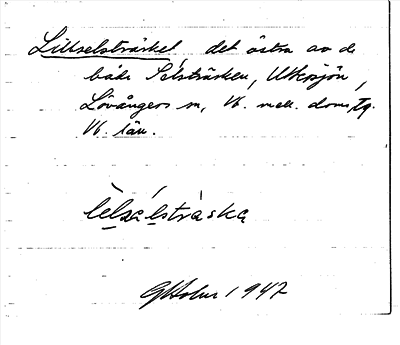 Lillselsträsket, det östra av de
båda Selsträsken, Uttersjön,
Lövångers sn, Vb. mell. doms.
Vb. län.
lèlsélstràska
GHolm 1947